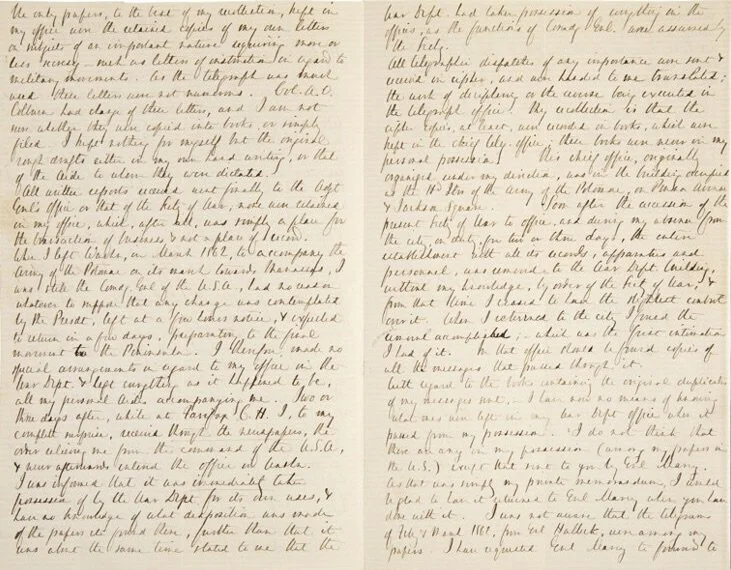 the only papers, to the best of my recollection, kept in
my office were the retained copies of my own letters
on subjects of an important nature requiring more or
less secrecy – such as letters of instruction in regard to
military movements. As the telegraph was much
used these letters were not numerous. Col. A. V.
Colburn had charge of these letters, and I am not
sure whether they were copied into books, or simply
filed. I kept nothing for myself but the original
rough drafts either in my own hand writing, or that
of the Aide to whom they were dictated.
All written reports received went finally to the Adjt
Genl's Office or that of the Secty of War, none were retained
in my office, which, after all, was simply a place for
the transaction of business & not a place of record.
When I left Washn, in March 1862, to accompany the
Army of the Potomac on its march towards Manassas, I
was still the Comdg Genl of the U.S.A., had no reason
whatever to suppose that any change was contemplated
by the Presdt, left at a few hours notice, & expected
to return in a few days, preparatory to the final
movement to the Peninsula. I therefore made no
special arrangements in regard to my office in the
War Dept & left everything as it happened to be,
all my personal Aides accompanying me. Two or
three days after, while at Fairfax C.H. I, to my
complete surprise, received through the newspapers, the
order relieving me from the command of the U.S.A.,
& never afterwards entered the office in Washn.
I was informed that it was immediately taken
possession of by the War Dept for its own uses, &
have no knowledge of what disposition was made
of the papers etc found there, further than that it
was about the same time stated to me that the
War Dept. had taken possession of everything in the
offices, as the functions of Comdg Genl. were assumed by
the Secty.
All telegraphic dispatches of any importance were sent &
received in cipher, and were handed to me translated;
the work of deciphering or the reverse being executed in
the telegraph office. My recollection is that the
cipher copies, at least, were recorded in books, which were
kept in the chief tely-office, these books were never in my
personal possession. This chief office, originally
organized under my direction, was in the building occupied
as the Hd Qtrs of the Army of the Potomac, on Penna Avenue
& Jackson Square. Soon after the accession of the
present Secty of War to office, and during my absence from
the city, on duty, for two or three days, the entire
establishment with all its records, apparatus and
personnel, was removed to the War Dept building,
without my knowledge, by order of the Sect of War, &
from that time I ceased to have the slightest control
over it. When I returned to the city I found the
removal accomplished, – which was the first intimation
I had of it. In that office should be found copies of
all the messages that passed through it.
With regard to the books containing the original duplicates
of my messages sent, – I have now no means of knowing
what ones were left in my War Dept office when it
passed from my possession. I do not think that
there are any in my possession (among my papers in
the U.S.) except that sent to you by Genl Marcy.
As that was simply my private memorandum, I should
be glad to have it returned to Genl Marcy when you have
done with it. I was not aware that the telegrams
of Feby & March 1862, from Genl Halleck, were among my
papers. I have requested Genl Marcy to forward to